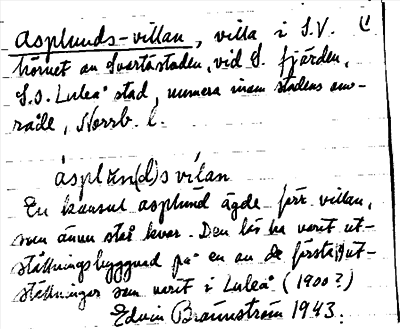 Asplunds-villan, villa i S.V.
hörnet av Svartöstaden, vid S. fjärden,
S.O. Luleå stad, numera inom stadens om-
råde, Norrb. l.
ásplɤn(d)s vílan
En konsul Asplund ägde förr villan,
som ännu står kvar. Den lär ha varit ut-
ställningsbyggnad på en av de första ut-
ställningar som varit i Luleå (1900?)
Edvin Brännström 1943.